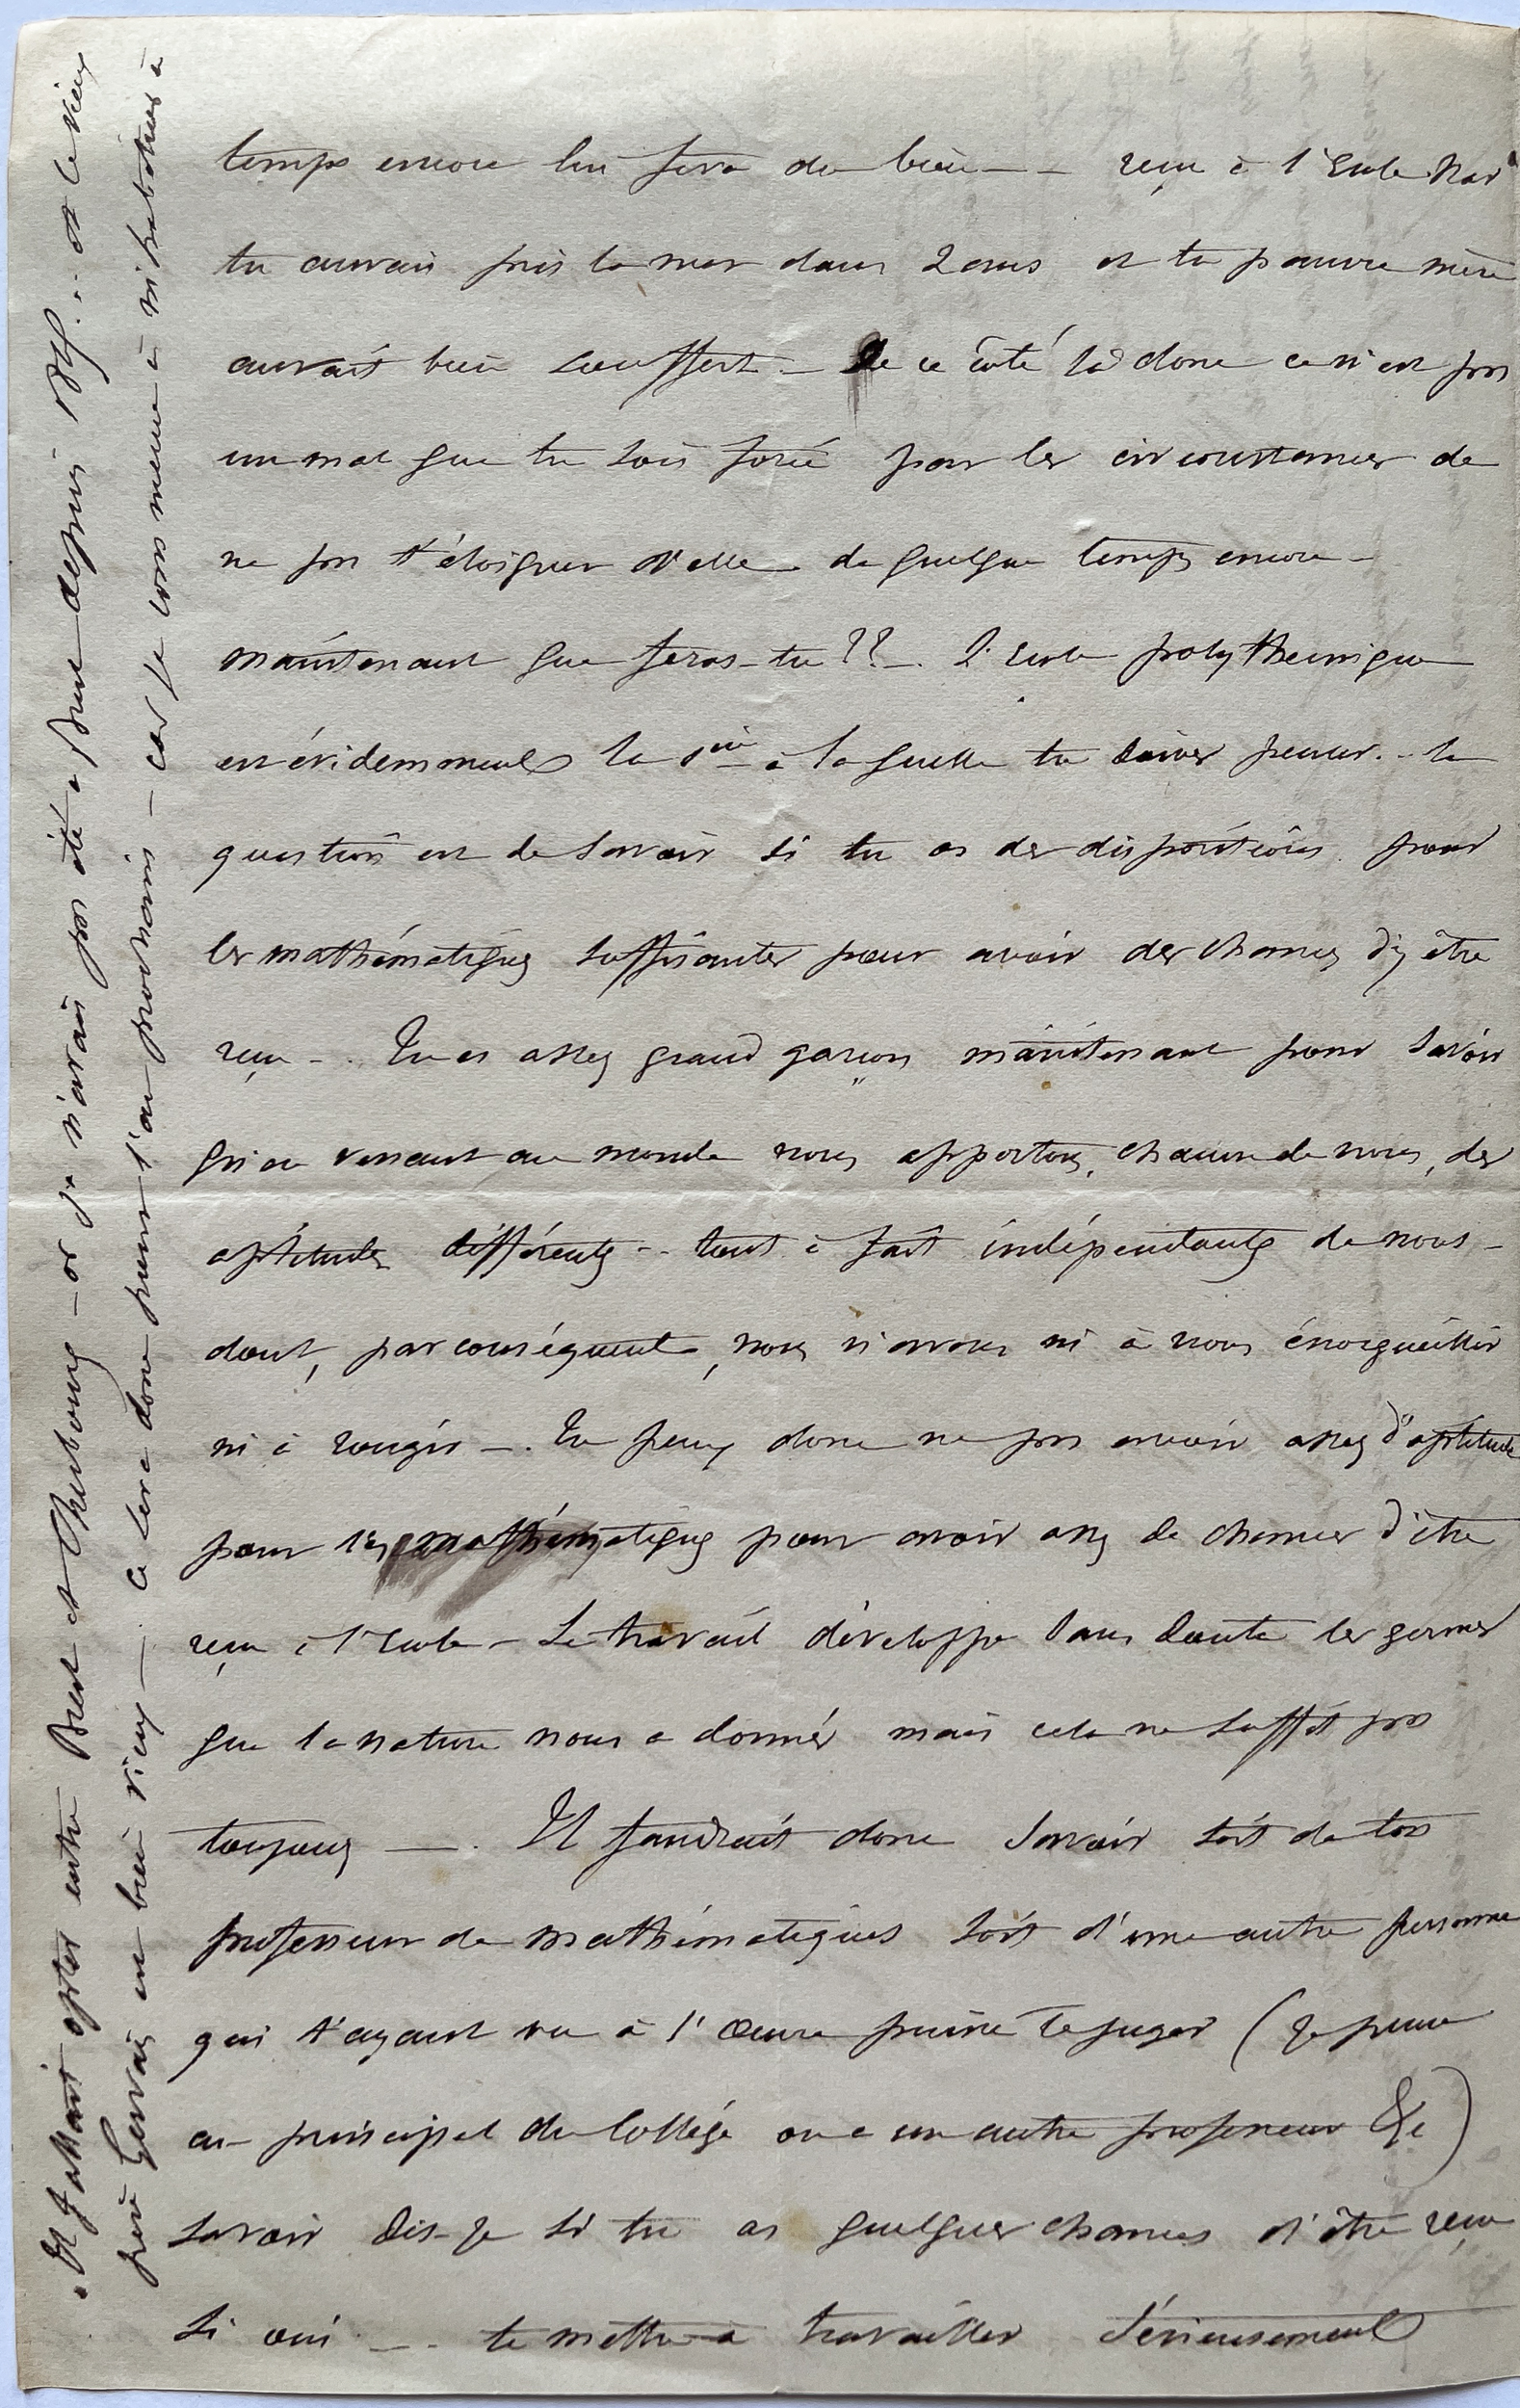 temps encore lui fera du bien — reçu à l'Ecole Nav
tu aurais pris la mer dans 2 ans et ta pauvre mère
aurait bien souffert — De ce côté là donc ce n'est pas
un mal que tu sois forcé par les circonstances de
ne pas t'éloigner d'elle de quelque temps encore —
maintenant que feras-tu ?? — L'Ecole polythecnique
est évidemment la 1ère à laquelle tu doives penser. — la
question est de savoir si tu as des dispositions pour
les mathématiques suffisantes pour avoir des chances d'y être
reçu —. Tu es assez grand garçon maintenant pour savoir
qu'en venant au monde nous apportons, chacun de nous, des
aptitudes différentes — tout à fait indépendantes de nous —
dont, par conséquent, nous n'avons ni à nous énorgueillir
ni à rougir —. Tu peux donc ne pas avoir assez d'aptitude
pour les mathématiques pour avoir assez de chances d'être
reçu à l'Ecole — Le travail développe sans doute les germes
que la nature nous a donnés mais cela ne suffit pas
toujours —. Il faudrait donc savoir soit de ton
professeur de mathématiques soit d'une autre personne
qui t'ayant vu à l'œuvre puisse te juger (Je pense
au principal du Collége ou a un autre professeur &c)
savoir dis-je si tu as quelques chances d'être reçu
Si oui —. te mettre à travailler sérieusement
Il fallait opter entre Brest et Cherbourg — or je n'avais pas été à Brest depuis ... et le vieux
père Gervais est bien vieux —. Ce sera donc pour l'an prochain — car je commence à m'habituer à